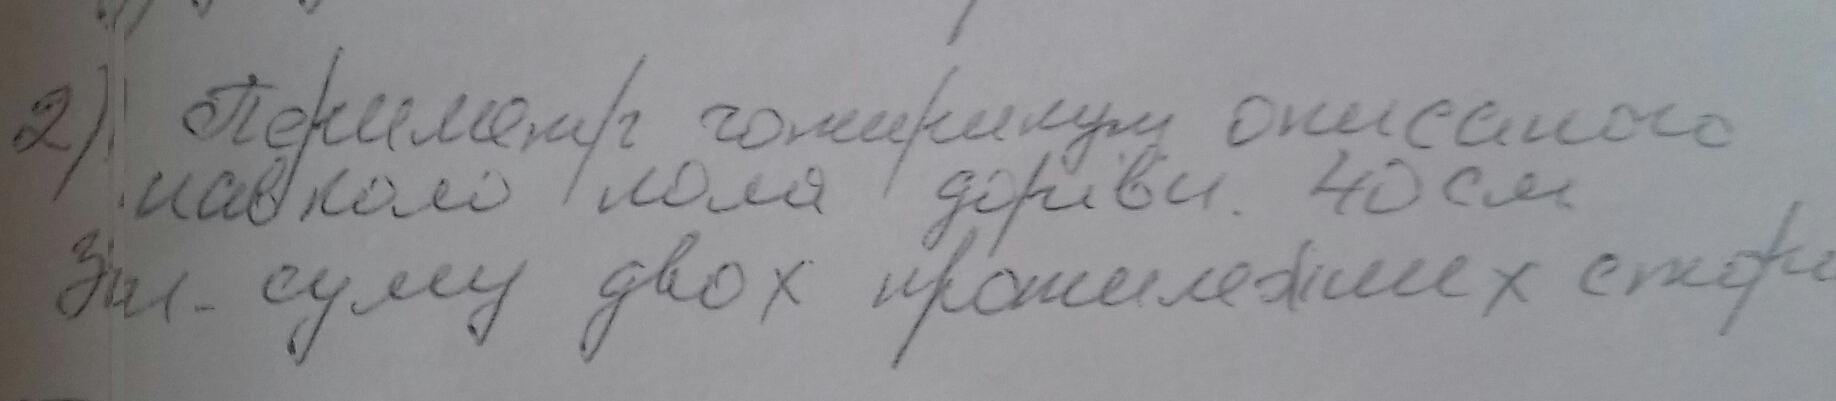 2) Периметр чотирикут описаного
навколо кола дорівн. 40 см
Зн. суму двох протилежних сторі